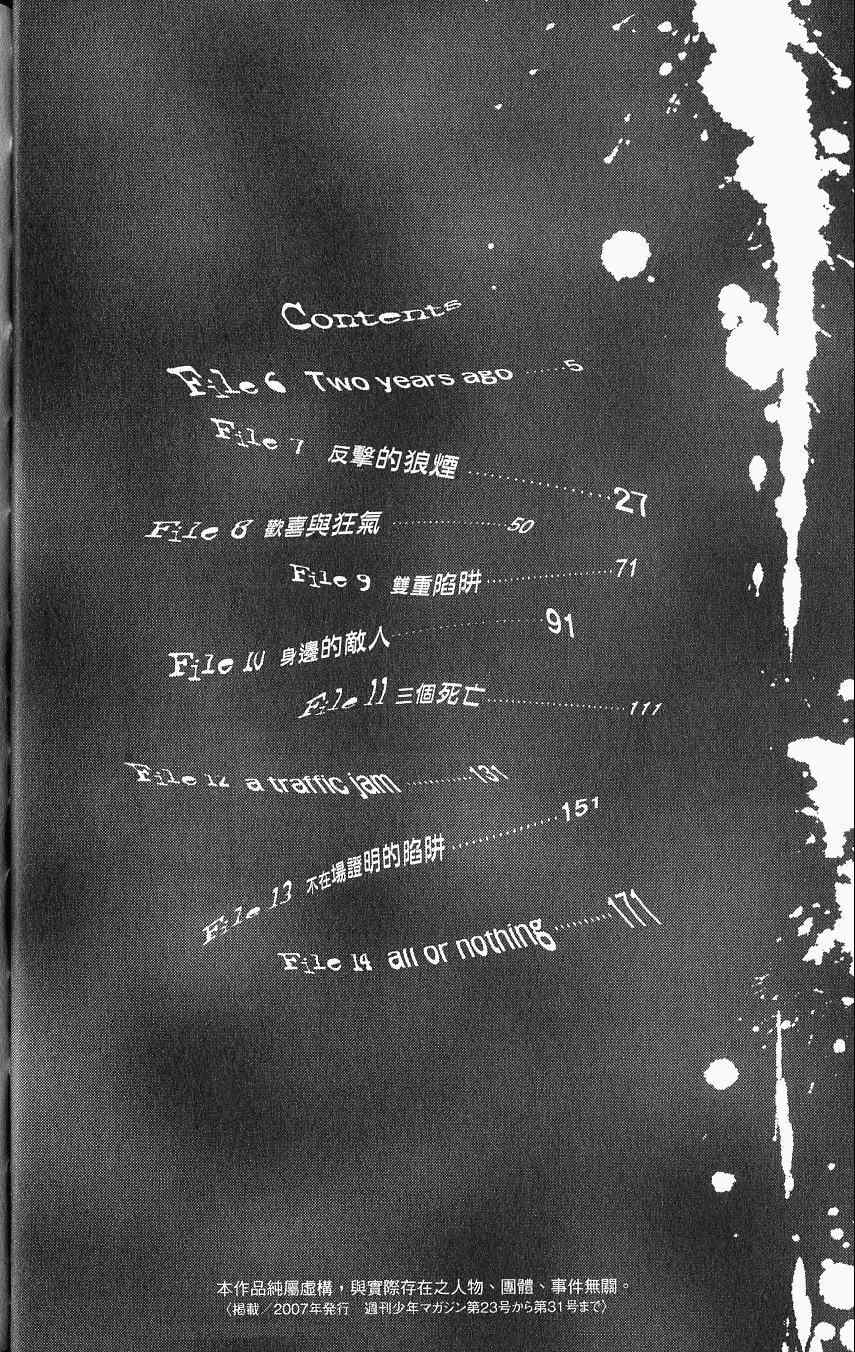 Contents
File 6 Two years ago ……5
File 7 反擊的狼煙 ……………27
File 8 歡喜與狂氣 …………50
File 9 雙重陷阱 …………71
File 10 身邊的敵人 …………91
File 11 三個死亡 …………111
File 12 a traffic jam ………131
File 13 不在場證明的陷阱 …………151
File 14 all or nothing ………171
本作品純屬虛構，與實際存在之人物、團體、事件無關。
〈掲載／2007年発行　週刊少年マガジン第23号から第31号まで〉